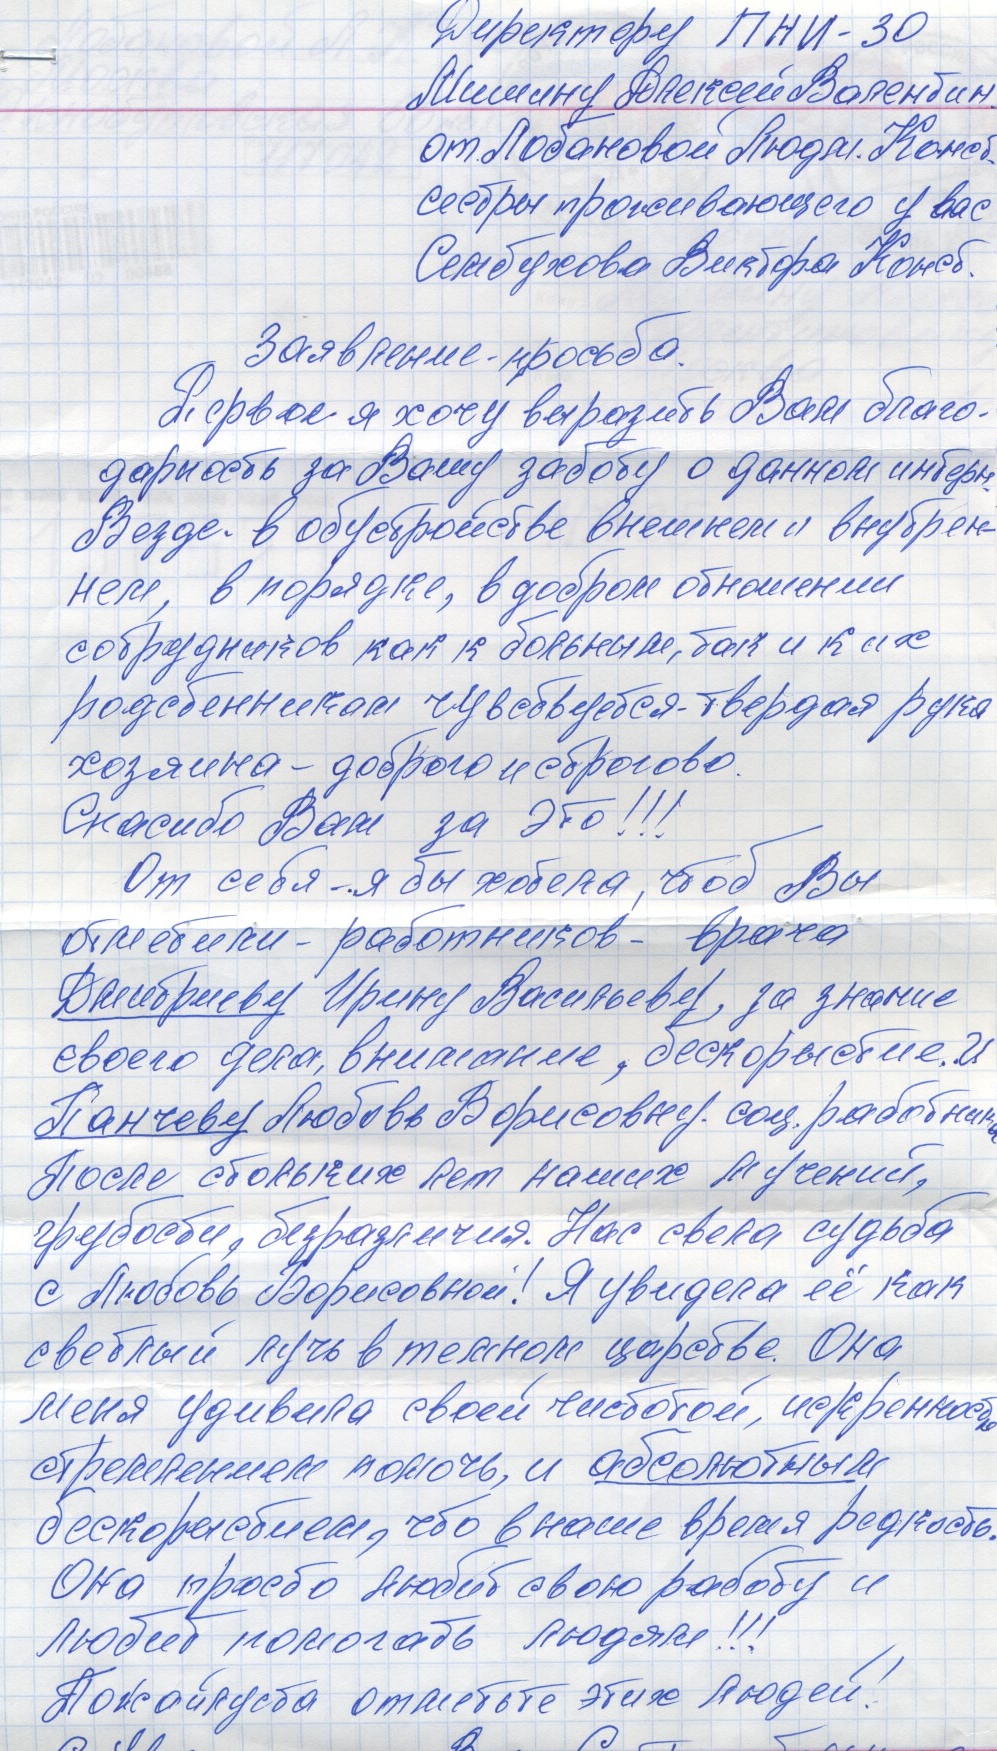 Директору ПНИ-30
Мишину Алексей Валентин.
от Лобановой Людм. Конст.
сестры проживающего у вас
Сентбухова Виктора Конст.
Заявление-просьба.
Первое я хочу выразить Вам благо-
дарность за Вашу заботу о данном интерн.
Везде- в обустройстве внешнем и внутрен-
нем, в порядке, в добром отношении
сотрудников как к больным, так и к их
родственникам чувствуется-твердая рука
хозяина – доброго и строгово.
Спасибо Вам за это!!!
От себя – я бы хотела, чтоб Вы
отметили – работников – врача
Дмитриеву Ирину Васильеву, за знание
своего дела, внимание, бескорыстие. И
Панчеву Любовь Борисовну- соц. работника
После стольких лет наших мучений,
грубости, безразличия. Нас свела судьба
с Любовь Борисовной! Я увидела её как
светлый лучь в темном царстве. Она
меня удивила своей чистотой, искренность
стремлением помочь, и абсолютным
бескорыстием, что в наше время редкость.
Она просто любит свою работу и
любит помогать людям!!!
Пожайлуста отметьте этих людей!